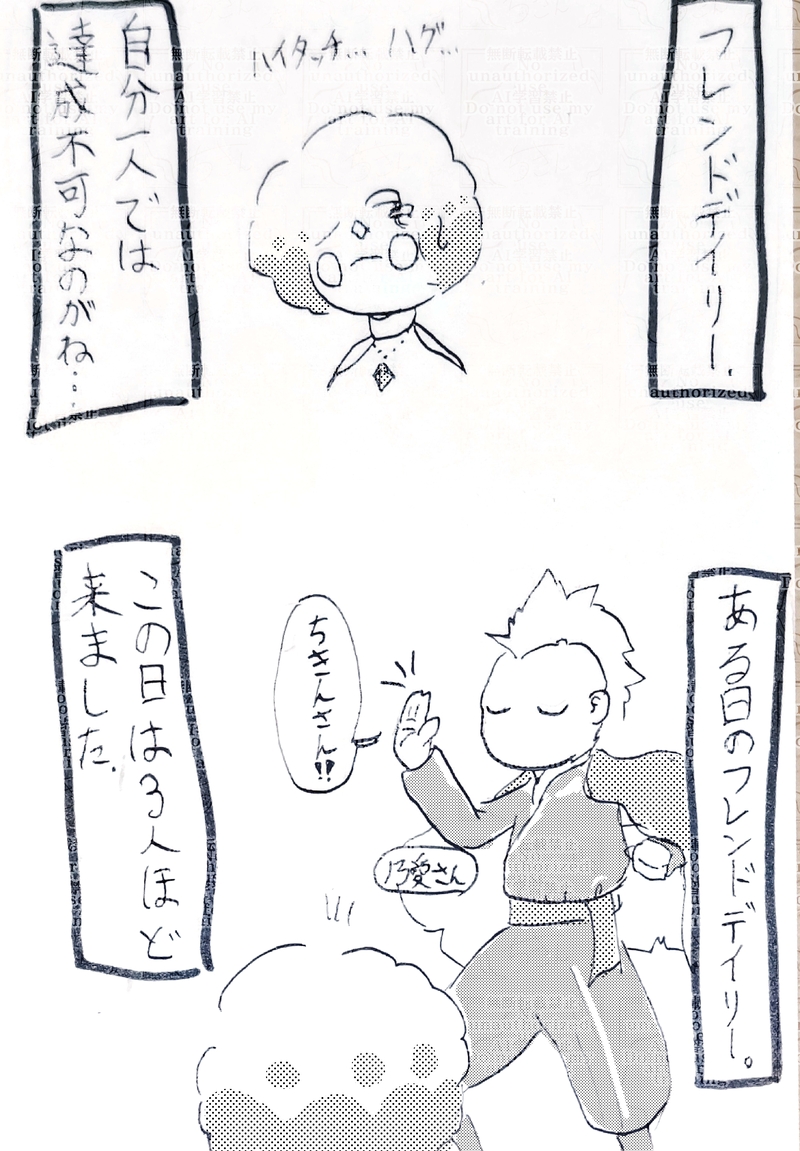 フレンドデイリー.
ハイタッチ… ハグ…
自分一人では
達成不可なのがね…
ある日のフレンドデイリー。
ちきんさん!!
乃愛さん
この日は3人ほど
来ました.
無断転載禁止
unauthorized
use.
AI学習禁止
Do not use my
art for AI
training